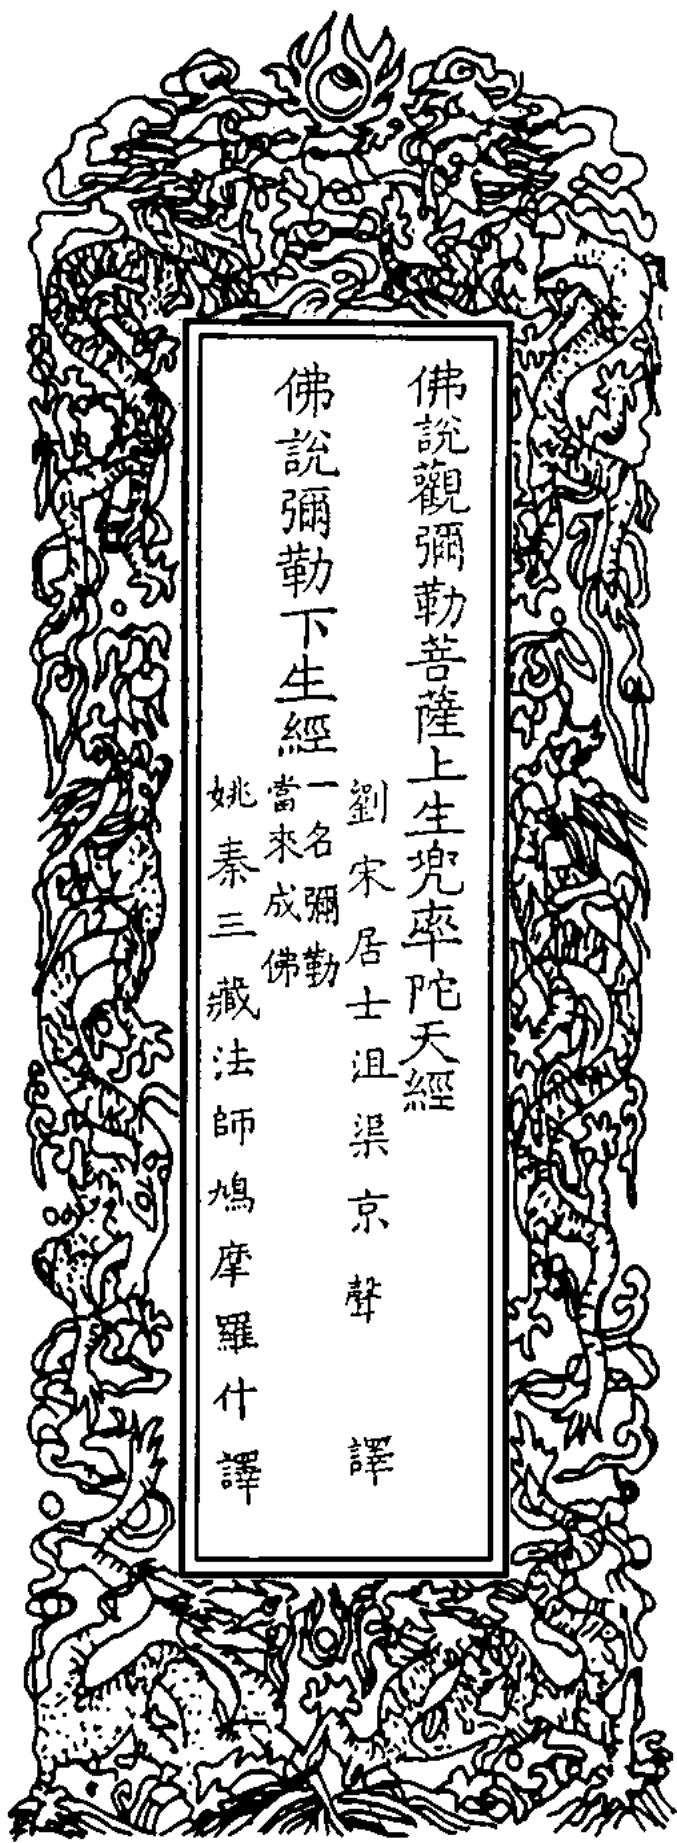 佛說觀彌勒菩薩上生兜率陀天經
劉宋居士沮渠京聲 譯
佛說彌勒下生經
一名彌勒
當來成佛
姚秦三藏法師鳩摩羅什譯